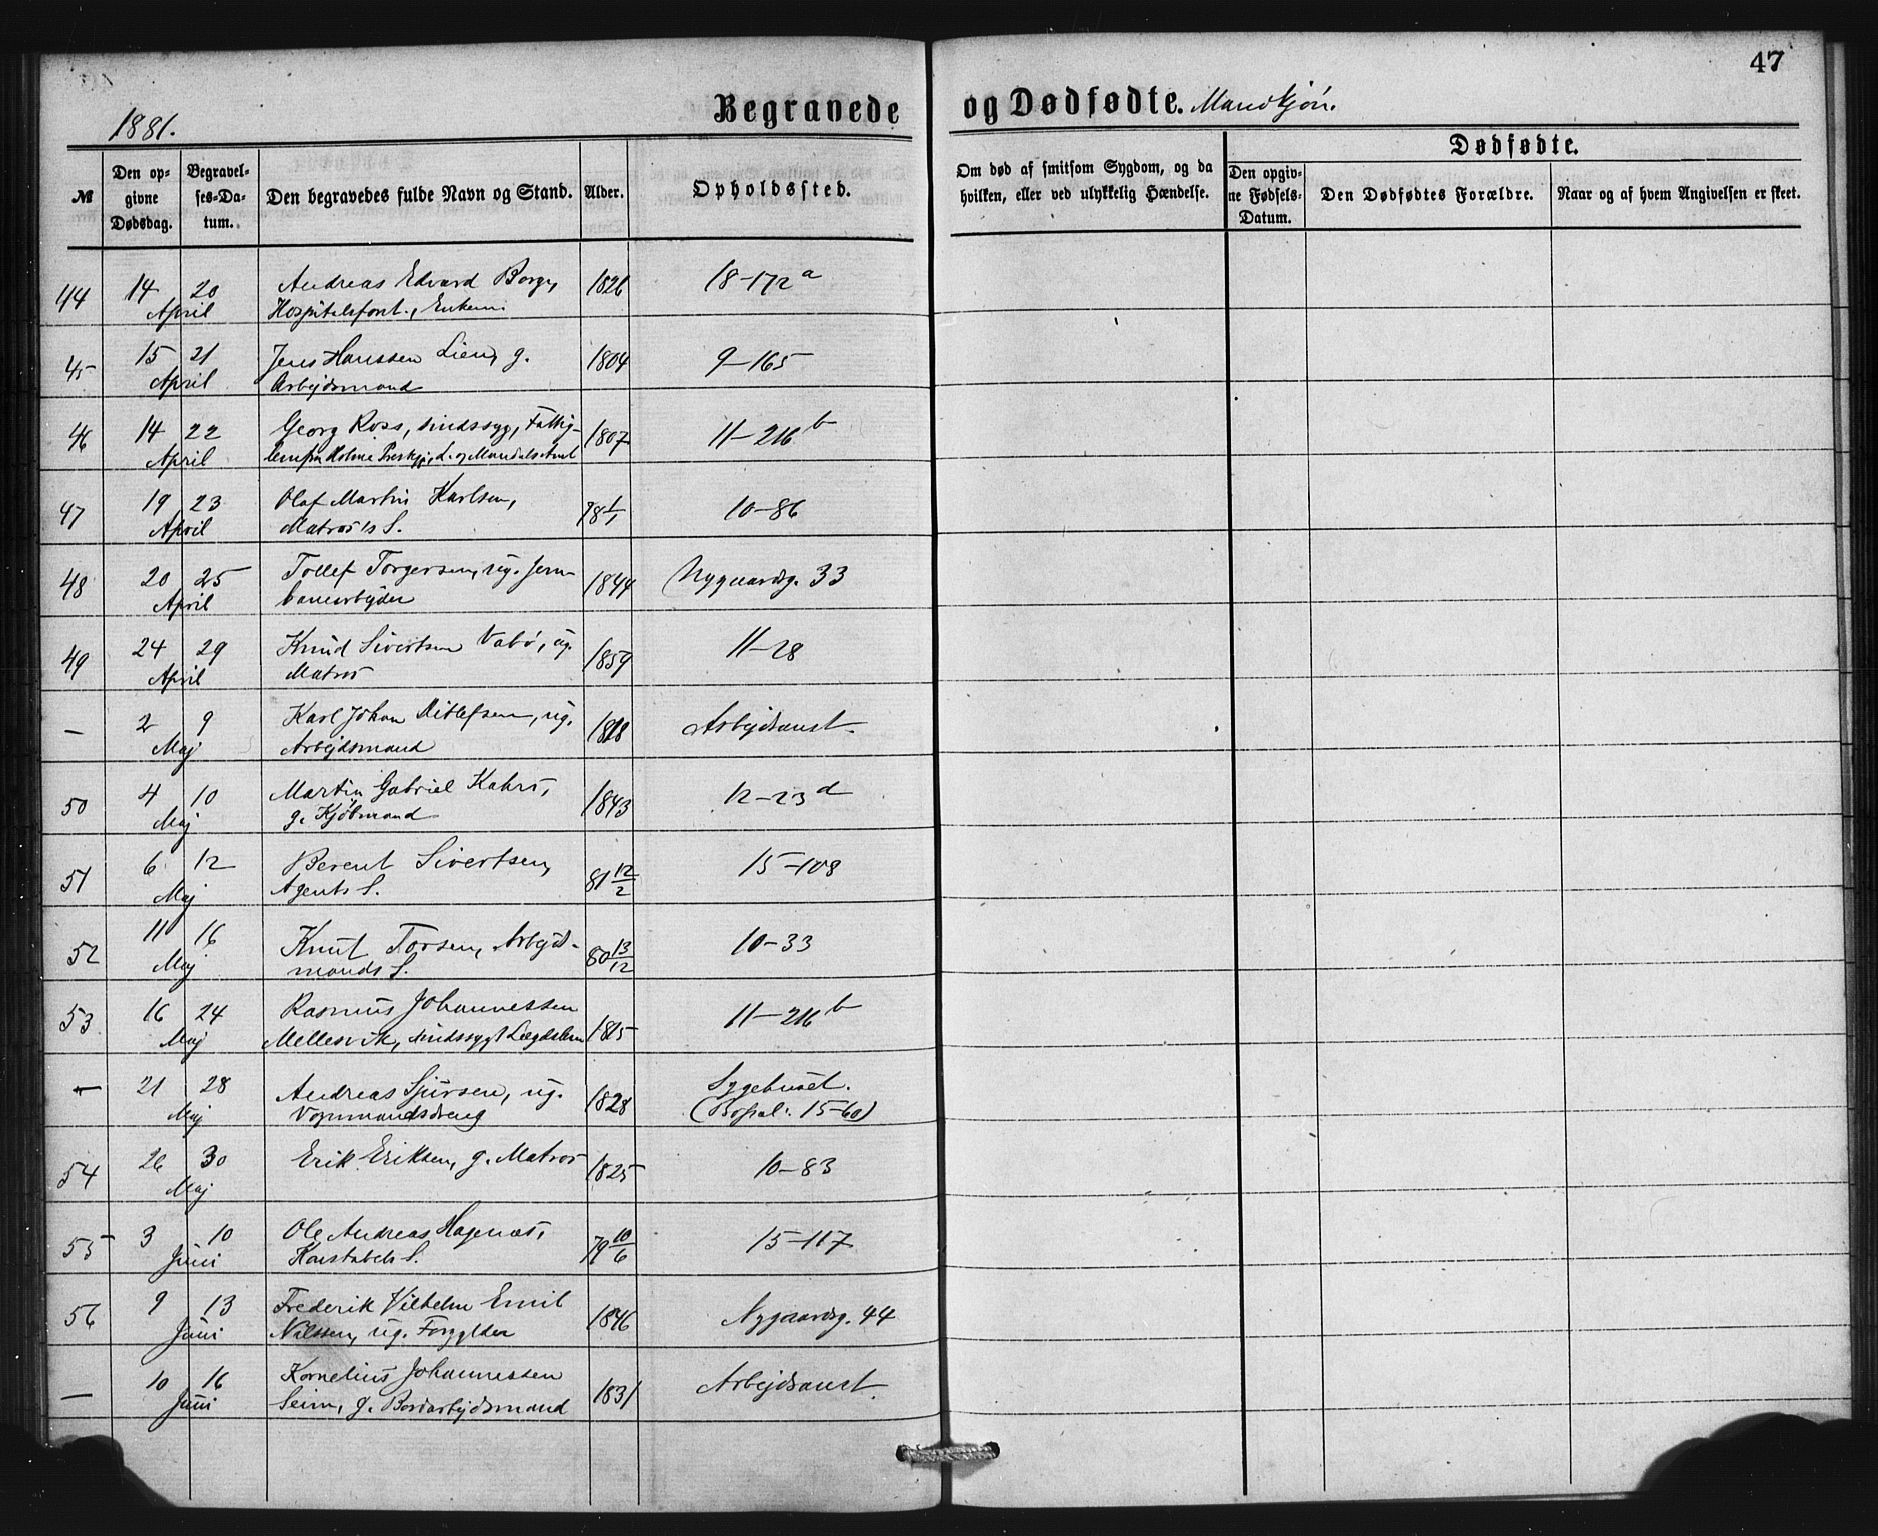 47
1881.
Begravede og Dødfødte. Mandkjøn.
№
Den opgivne Dødsdag.
Begravelses-Datum.
Den begravedes fulde Navn og Stand.
Alder.
Opholdssted.
Om død af smitsom Sygdom, og da hvilken, eller ved ulykkelig Hændelse.
Dødfødte.
Den opgivne Fødsels-Datum.
Den Dødfødtes Forældre.
Naar og af hvem Angivelsen er skeet.
44 14 20 Andreas Edvard Borge, 1826 18-172a
April Hospitalsfort., Enkem.
45 15 21 Jens Hanssen Lien, g. 1804 9-165
April Arbejdsmand
46 14 22 Georg Ross, sindssyg, Fattig- 1807 11-216b
April lem fra Holme Prestgj., L. og Mandals Amt
47 19 23 Olaf Martin Karlsen, 78 1/1 10-86
April Matros's S.
48 20 25 Tollef Torgersen, ug. Jern- 1844 Nygaardsg. 33
April banearbejder
49 24 29 Knud Sivertsen Vabø, ug. 1859 11-28
April Matros
— 2 9 Karl Johan Ditlefsen, ug. 1818 Arbejdsanst.
Maj Arbejdsmand
50 4 10 Martin Gabriel Kahrs, 1843 12-23d
Maj g. Kjøbmand
51 6 12 Berent Sivertsen, 81 12/2 15-108
Maj Agents S.
52 11 16 Knut Torsen, Arbejds- 80 13/12 10-33
Maj mands S.
53 16 24 Rasmus Johannessen 1815 11-216b
Maj Mellesvik, sindssygt Lægdslem
— 21 28 Andreas Sjursen, ug. 1828 Sygehuset.
Maj Vognmandsdreng (Bopæl: 15-60)
54 26 30 Erik Eriksen, g. Matros 1825 10-83
Maj
55 3 10 Ole Andreas Hagenæs, 79 10/6 15-117
Juni Konstabels S.
56 9 13 Frederik Vilhelm Emil 1846 Nygaardsg. 44
Juni Nilssen, ug. Forgylder
— 10 16 Kornelius Johannessen 1831 Arbejdsanst.
Juni Seim, g. Bordarbejdsmand